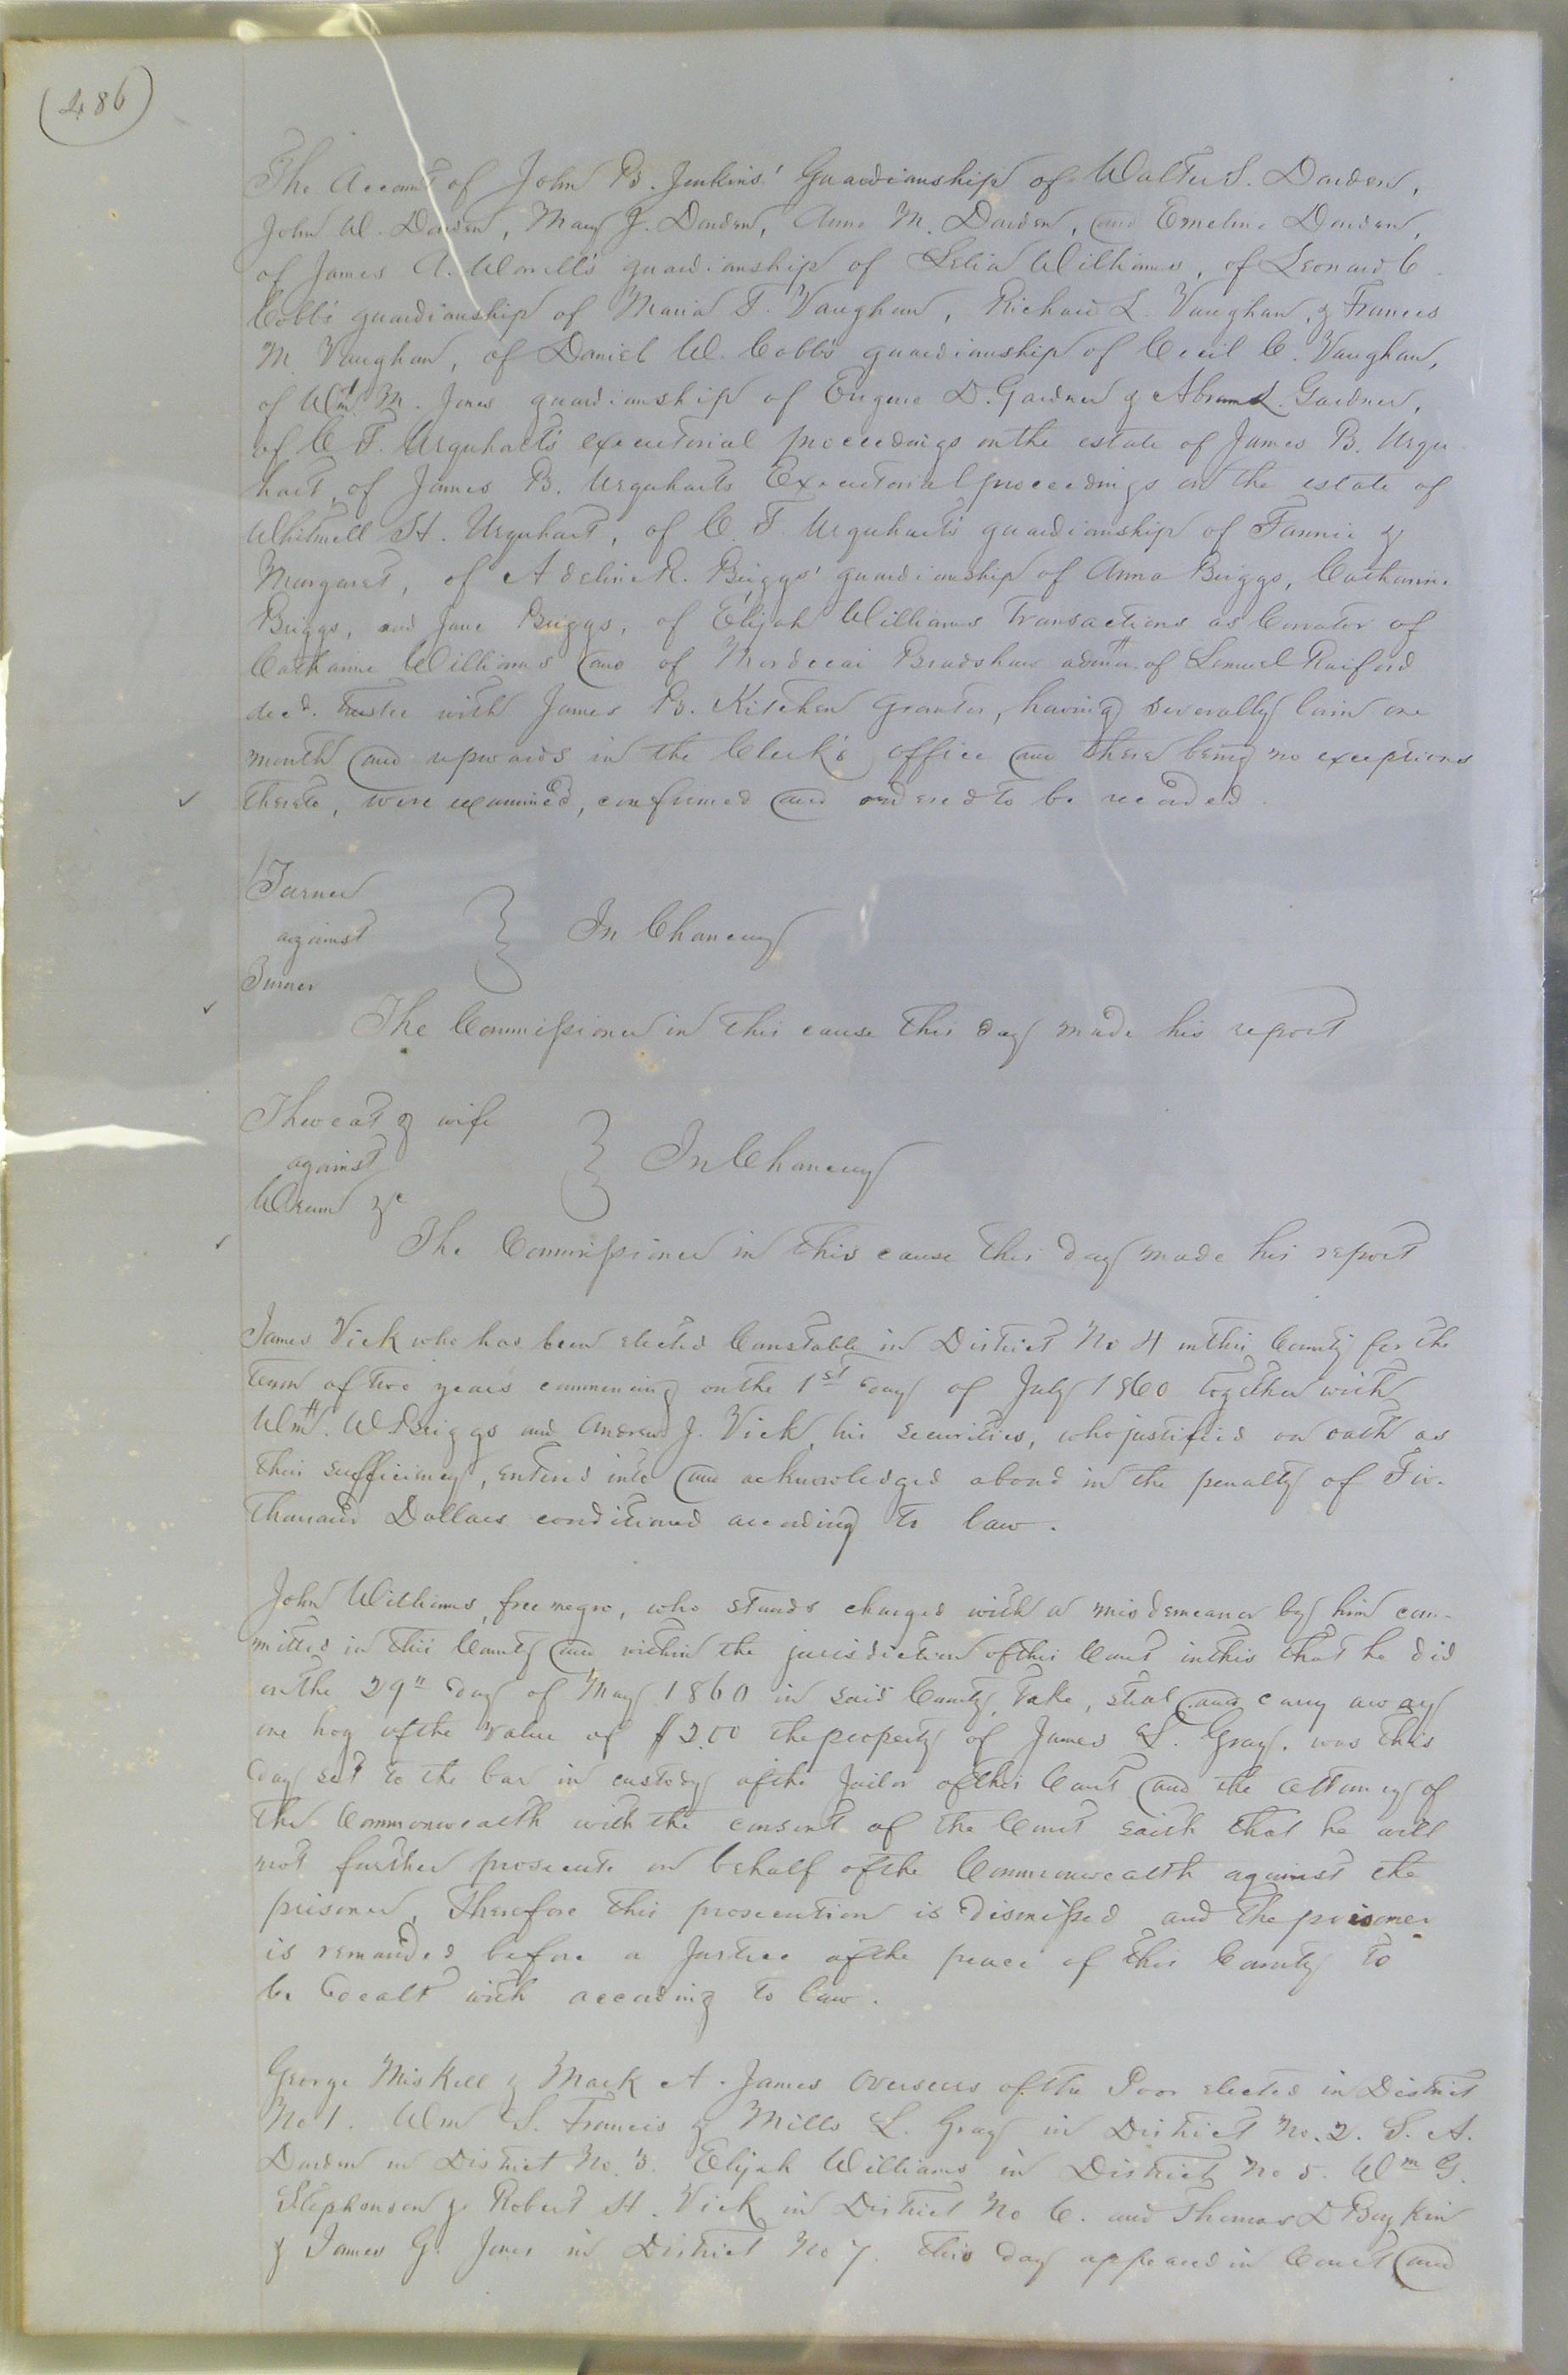 (486)
The Account of John B. Jenkins' Guardianship of Walter S. Darden,
John W. Darden, Mary J. Darden, Anne M. Darden, and Emeline Darden,
of James A. Worrell's guardianship of Lelia Williams, of Leonard C.
Cobb's guardianship of Maria T. Vaughan, Richard L. Vaughan, & Frances
M. Vaughan, of Daniel W. Cobb's guardianship of Cecil C. Vaughan,
of Wm. M. Jones guardianship of Eugene D. Gardner & Abram L. Gardner,
of C. F. Urquhart's executorial proceedings on the estate of James B. Urqu-
hart, of James B. Urquharts Executorial proceedings on the estate of
Whitmell H. Urquhart, of C. F. Urquhart's guardianship of Fannie &
Margaret, of Adeline R. Briggs' guardianship of Anna Briggs, Catharine
Briggs, and Jane Briggs, of Elijah Williams Transactions as Curator of
Catharine Williams and of Mordecai Bradshaw admr. of Lemuel Raiford
decd. Trustee with James B. Kitchen Grantor, having severally lain one
month and upwards in the Clerk's office and there being no exceptions
thereto, were examined, confirmed and ordered to be recorded.
Turner
against
Turner
} In Chancery
The Commissioner in this cause this day made his report
Thweat & wife
against
Urum &c
} In Chancery
The Commissioner in this cause this day made his report
James Vick who has been elected Constable in District No 4 in this County for the
term of two years commencing on the 1st day of July 1860 together with
Wm. W Briggs and Andrew J. Vick, his securities, who justified on oath as
their sufficiency, entered into and acknowledged a bond in the penalty of Five
Thousand Dollars conditioned according to law.
John Williams, free negro, who stands charged with a misdemeanor by him com-
mitted in this County and within the jurisdiction of this Court in this that he did
on the 29th day of May 1860 in said County, take, steal and carry away
one hog of the value of $2.00 the property of James L. Gray. was this
day set to the bar in custody of the Jailor of this Court and the Attorney of
the Commonwealth with the consent of the Court saith that he will
not further prosecute on behalf of the Commonwealth against the
prisoner, Therefore this prosecution is dismissed and the prisoner
is remanded before a Justice of the peace of this County to
be dealt with according to law.
George Miskell & Mark A. James Overseers of the Poor elected in District
No 1. Wm S. Francis & Mills L. Gray in District No. 2. S. A.
Darden in District No. 3. Elijah Williams in District No 5. Wm G.
Stephenson & Robert H. Vick in District No 6. and Thomas D Boykin
& James G. Jones in District No 7. this day appeared in Court and